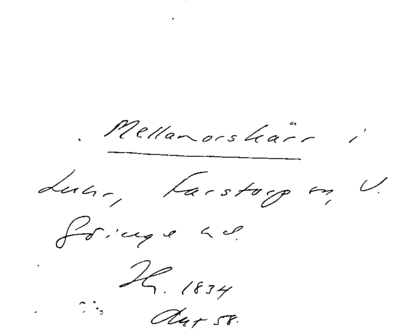 Mellanorskärr i
Luhr, Farstorp sn, V.
Göinge hd.
Hg. 1834
Akt 58.